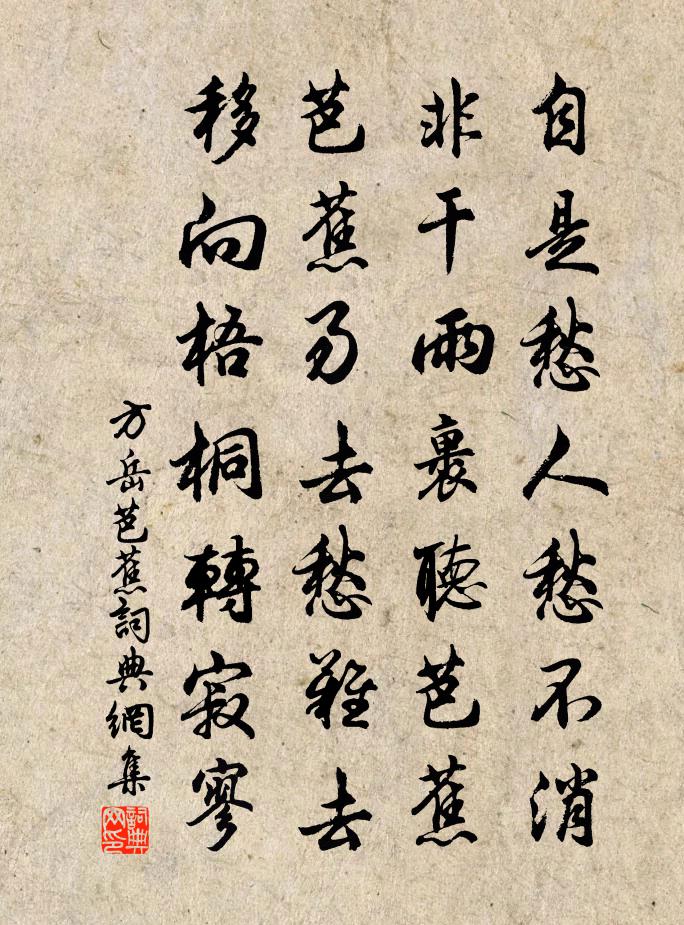 自是愁人愁不消
非干雨裏聽芭蕉
芭蕉易去愁難去
移向梧桐轉寂寥
方岳芭蕉詞典網集
詞典網印